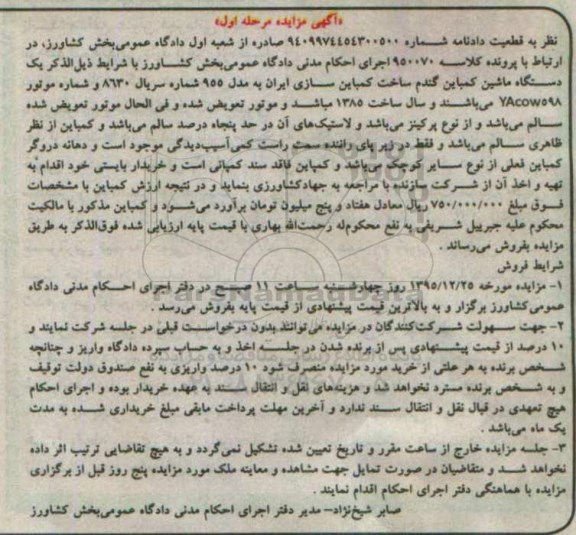 «آگهی مزایده مرحله اول»
نظر به قطعیت دادنامه شماره ۹۴۰۹۹۷۴۴۵۴۳۰۰۵۰۰ صادره از شعبه اول دادگاه عمومی‌بخش کشاورز، در
ارتباط با پرونده کلاسه ۹۵۰۰۷۰ اجرای احکام مدنی دادگاه عمومی‌بخش کشاورز با شرایط ذیل‌الذکر یک
دستگاه ماشین کمباین گندم ساخت کمباین سازی ایران به مدل ۹۵۵ شماره سریال ۸۶۳۰ و شماره موتور
YAcow۵۹۸ می‌باشند و سال ساخت ۱۳۸۵ میاشد و موتور تعویض شده و فی الحال موتور تعویض شده
سالم می‌باشد و از نوع پرکینز می‌باشد و لاستیک‌های آن در حد پنجاه درصد سالم می‌باشد و کمباین از نظر
ظاهری سالم می‌باشد و فقط در زیر پای راننده سمت راست کمی‌آسیب‌دیدگی موجود است و دهانه دروگر
کمباین فعلی از نوع سایز کوچک می‌باشد و کمباین فاقد سند کمپانی است و خریدار بایستی خود اقدام به
تهیه و اخذ آن از شرکت سازنده با مراجعه به جهادکشاورزی بنماید و در نتیجه ارزش کمباین با مشخصات
فوق مبلغ ۷۵۰/۰۰۰/۰۰۰ ریال معادل هفتاد و پنج میلیون تومان برآورد می‌شود و کمباین مذکور با مالکیت
محکوم علیه جبرییل شریفی به نفع محکوم‌له رحمت‌الله بهاری با قیمت پایه ارزیابی شده فوق‌الذکر به طریق
مزایده بفروش می‌رساند .
شرایط فروش
۱- مزایده مورخه ۱۳۹۵/۱۲/۲۵ روز چهارشنبه ساعت ۱۱ صبح در دفتر اجرای احکام مدنی دادگاه
عمومی‌کشاورز برگزار و به بالاترین قیمت پیشنهادی از قیمت پایه بفروش می‌رسد .
۲- جهت سهولت شرکت‌کنندگان در مزایده می‌توانند بدون درخواست قبلی در جلسه شرکت نمایند و
۱۰ درصد از قیمت پیشنهادی پس از برنده شدن در جلسه اخذ و به حساب سپرده دادگاه واریز و چنانچه
شخص برنده به هر علتی از خرید مورد مزایده منصرف شود ۱۰ درصد واریزی به نفع صندوق دولت توقیف
و به شخص برنده مسترد نخواهد شد و هزینه‌های نقل و انتقال سند به عهده خریدار بوده و اجرای احکام
هیچ تعهدی در قبال نقل و انتقال سند ندارد و آخرین مهلت پرداخت مابقی مبلغ خریداری شده به مدت
یک ماه می‌باشد .
۳- جلسه مزایده خارج از ساعت مقرر و تاریخ تعیین شده تشکیل نمی‌گردد و به هیچ تقاضایی ترتیب اثر داده
نخواهد شد و متقاضیان در صورت تمایل جهت مشاهده و معاینه ملک مورد مزایده پنج روز قبل از برگزاری
مزایده با هماهنگی دفتر اجرای احکام اقدام نمایند .
صابر شیخ‌نژاد- مدیر دفتر اجرای احکام مدنی دادگاه عمومی‌بخش کشاورز